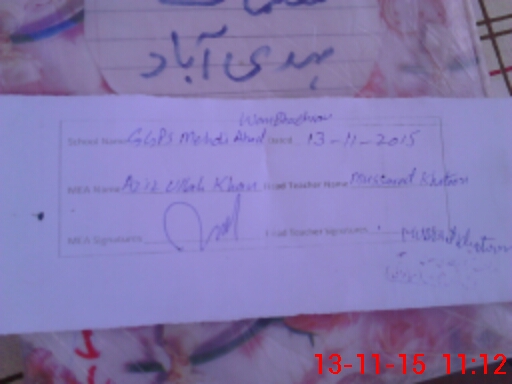 مہدی آباد
School Name GGPS Mehdi Abad Date 13-11-2015
MEA Name Aziz Ullah Khan Head Teacher Name Mussarat Khatoon
MEA Signature Head Teacher Signature
13-11-15 11:12